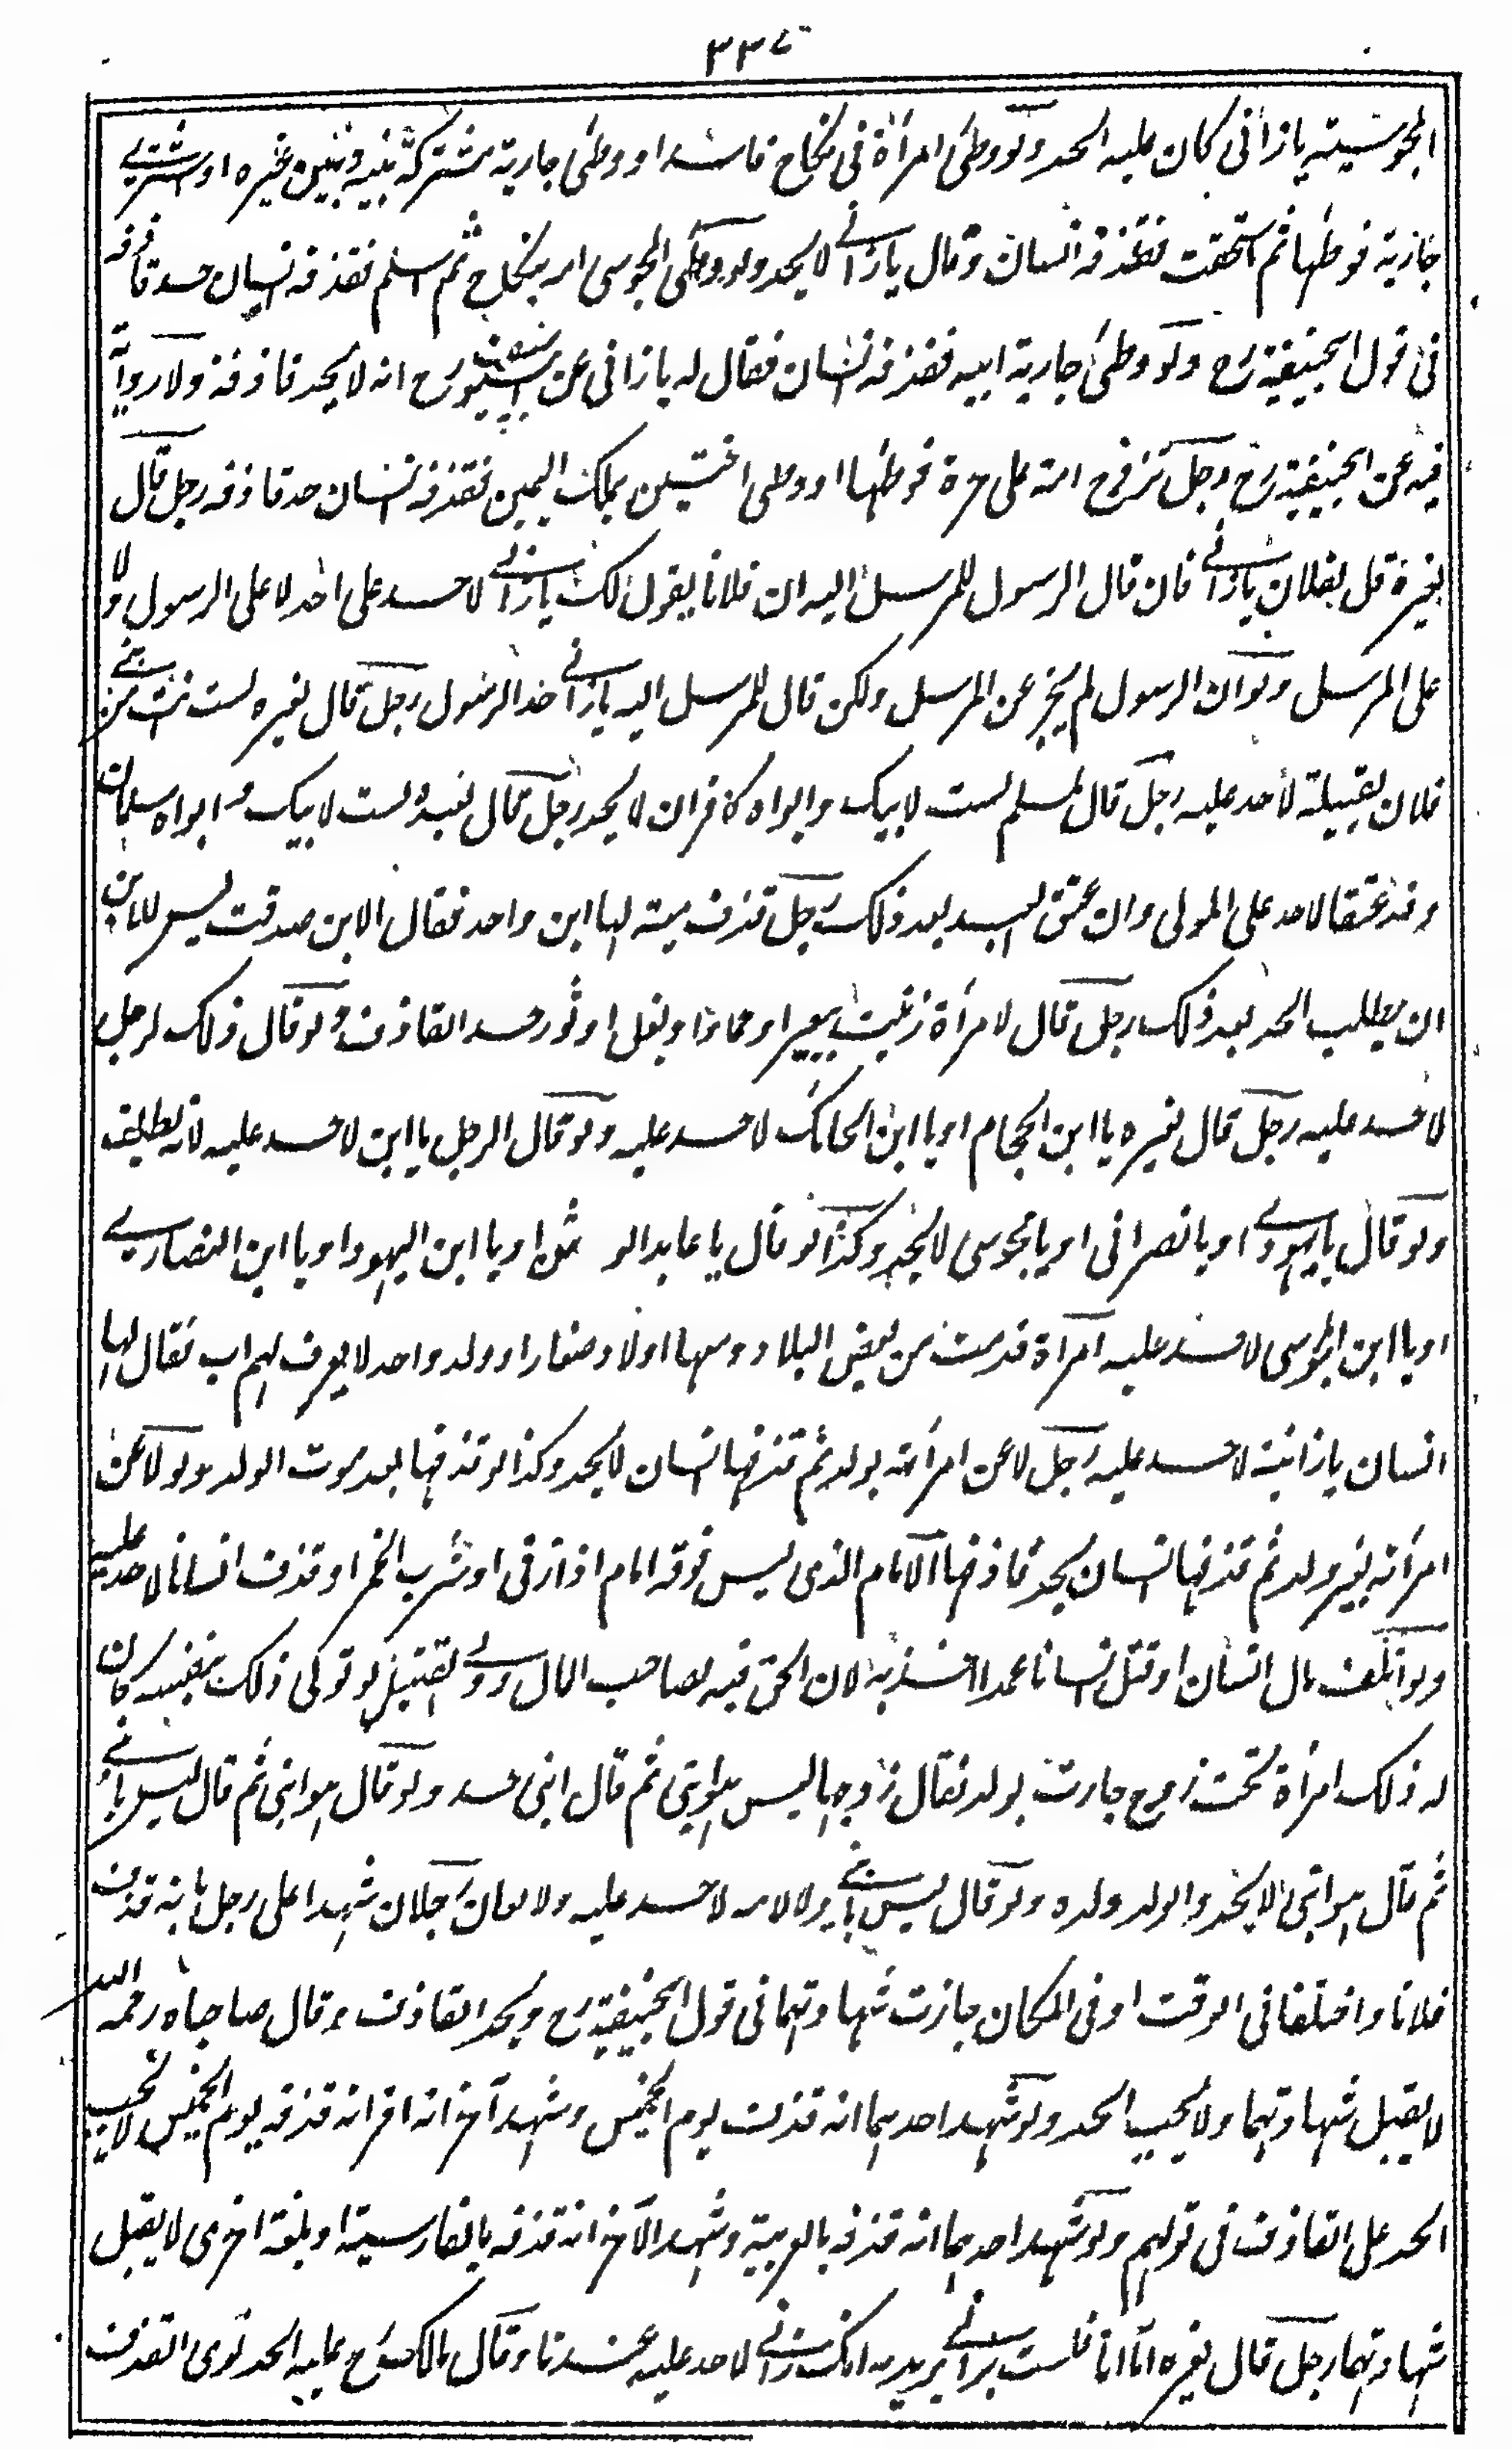 ٣٣٧
المجوسية يا زاني كان عليه الحد ولو وطئ امرأة في نكاح فاسد او وطئ جارية مشتركة بينه وبين غيره او اشترى
جارية فوطئها ثم استحقت فقذفه انسان وقال يا زاني لا يحد ولو وطئ المجوسي امه بنكاح ثم اسلم فقذفه انسان حد قاذفه
في قول ابيحنيفة رح ولو وطئ جارية ابيه فقذفه انسان فقال له يا زاني عن ابي يوسف رح انه لا يحد قاذفه ولا رواية
فيه عن ابيحنيفة رح رجل تزوج امة على حرة فوطئها او وطئ اختين بملك اليمين فقذفه انسان حد قاذفه رجل قال
لغيره قل لفلان يا زاني فان قال الرسول للمرسل اليه ان فلانا يقول لك يا زاني لا حد على احد لا على الرسول ولا
على المرسل ولو ان الرسول لم يخبر عن المرسل ولكن قال للمرسل اليه يا زاني حد الرسول رجل قال لغيره لست من بني
فلان لقبيلة لا حد عليه رجل قال لمسلم لست لابيك وابواه كافران لا يحد رجل قال لعبده لست لابيك و ابواه مسلمان
وقد عتقا لا حد على المولى وان عتق العبد بعد ذلك رجل قذف ميتة لها ابن واحد فقال الابن صدقت ليس للابن
ان يطلب الحد بعد ذلك رجل قال لامرأة زنيت ببعير او حمار او بغل او ثور حد القاذف ولو قال ذلك لرجل
لا حد عليه رجل قال لغيره يا ابن الحجام او يا ابن الحائك لا حد عليه ولو قال الرجل يا ابن لا حد عليه لانه تلطيف
ولو قال يا يهودي او يا نصراني او يا مجوسي لا يحد وكذا لو قال يا عابد الوثن او يا ابن اليهود او يا ابن النصارى
او يا ابن المجوسي لا حد عليه امرأة قدمت من بعض البلاد ومعها اولاد صغار او ولد واحد لا يعرف لهم اب فقال لها
انسان يا زانية لا حد عليه رجل لاعن امرأته بولد ثم قذفها انسان لا يحد وكذا لو قذفها بعد موت الولد ولو لاعن
امرأته بغير ولد ثم قذفها انسان يحد قاذفها الامام الذي ليس فوقه امام اذا زنى او شرب الخمر او قذف انسانا لا حد عليه
ولو اتلف مال انسان او قتل انسانا عمدا اخذ به لان الحق فيه لصاحب المال وولي القتيل لو تولى ذلك بنفسه كان
له ذلك امرأة تحت زوج جاءت بولد فقال زوجها ليس هو ابني ثم قال ابني حد ولو قال هو ابني ثم قال ليس بابني
ثم قال هو ابني لا يحد والولد ولده ولو قال ليس بابني ولا لامه لا حد عليه ولا لعان رجلان شهدا على رجل بانه قذف
فلانا واختلفا في الوقت او في المكان جازت شهادتهما في قول ابيحنيفة رح ويحد القاذف وقال صاحباه رحمه الله
لا يقبل شهادتهما ولا يجب الحد ولو شهد احدهما انه قذف يوم الخميس وشهد آخر انه اقر انه قذفه يوم الخميس لا يجب
الحد على القاذف في قولهم ولو شهد احدهما انه قذفه بالعربية وشهد الآخر انه قذفه بالفارسية او بلغة اخرى لا يقبل
شهادتهما رجل قال لغيره اما انا فلست بزاني يريد به انك زاني لا حد عليه عندنا وقال مالك رح عليه الحد نوى القذف